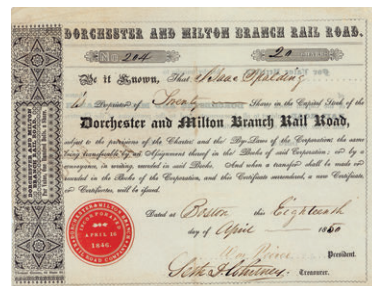 DORCHESTER AND MILTON BRANCH RAIL ROAD.
No. 204 20 Shares
Be it Known, That Isaac Spalding
is Proprietor of Twenty Shares in the Capital Stock of the
Dorchester and Milton Branch Rail Road,
subject to the provisions of the Charter and the By-Laws of the Corporation; the same
being transferable by an Assignment thereof in the Books of said Corporation; or by a
Conveyance, in writing, recorded in said Books. And when a transfer shall be made or
recorded in the Books of the Corporation, and this Certificate surrendered, a new Certificate,
or Certificates, will be issued.
Dated at Boston this Eighteenth
day of April 1850
President.
Seth H. Whitney, Treasurer.
DORCHESTER AND MILTON
BRANCH RAIL ROAD.
DORCHESTER & MILTON BRANCH
INCORPORATED
APRIL 16
1846.
RAIL ROAD COMPANY